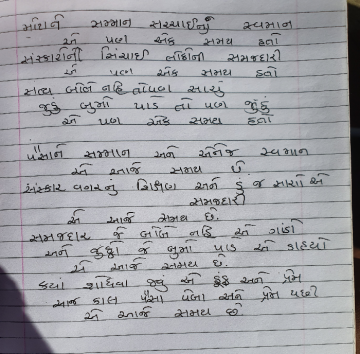 માણસને સમ્માન સચ્ચાઈનું સ્વમાન
એ પણ એક સમય હતો
સંસ્કારોની સિંચાઈ લોહીની સમજદારી
એ પણ એક સમય હતો
સત્ય બોલે નહિ તોપણ સાચું
જુઠું બુમો પાડે તો પણ જુઠું
એ પણ એક સમય હતો
પૈસાને સમ્માન અને એનેજ સ્વમાન
એ આજે સમય છે
સંસ્કાર વગરનું શિક્ષણ અને હું જ સાચો એ
સમજદારી
એ આજે સમય છે.
સમજદાર જે બોલે નહિ એ ગાંડો
અને જુઠ્ઠો જે બુમો પાડે એ ડાહ્યો
એ આજે સમય છે.
ક્યાં શોધવા જવું એ હૂંફ અને પ્રેમ
આજ કાલ પૈસા પેલા અને પ્રેમ પછી
એ આજે સમય છે.